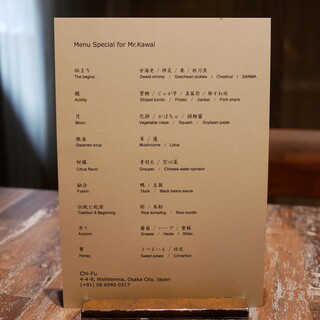 Menu Special for Mr.Kawai
始まり 甘海老 / 搾菜 / 栗 / 秋刀魚
The begins Sweet shrimp / Szechwan pickles / Chestnut / SANMA
酸 / じゃが芋 /
Acidity Striped bonito / Potato / / Pork shank
月 / かぼちゃ / 胡麻醤
Moon Vegetable crepe / Squash / Soybean paste
蒸湯 茸 / 蓮
Steamed soup Mushrooms / Lotus
柑橘 / 空心菜
Citrus flavor Grouper / Chinese water spinach
融合 鴨 / 豆豉
Fusion Duck / Black beans sauce
伝統と起源 粽 / 米粉
Tradition & Beginning Rice dumpling / Rice noodle
実り 葡萄 / ハーブ /
Autumn Grapes / Herbs /
蜜 さつまいも / 桂皮
Honey Sweet potato / Cinnamon
Chi-Fu
4-4-8, Nishitenma, Osaka City, Japan
(+81) 06 6940 0317